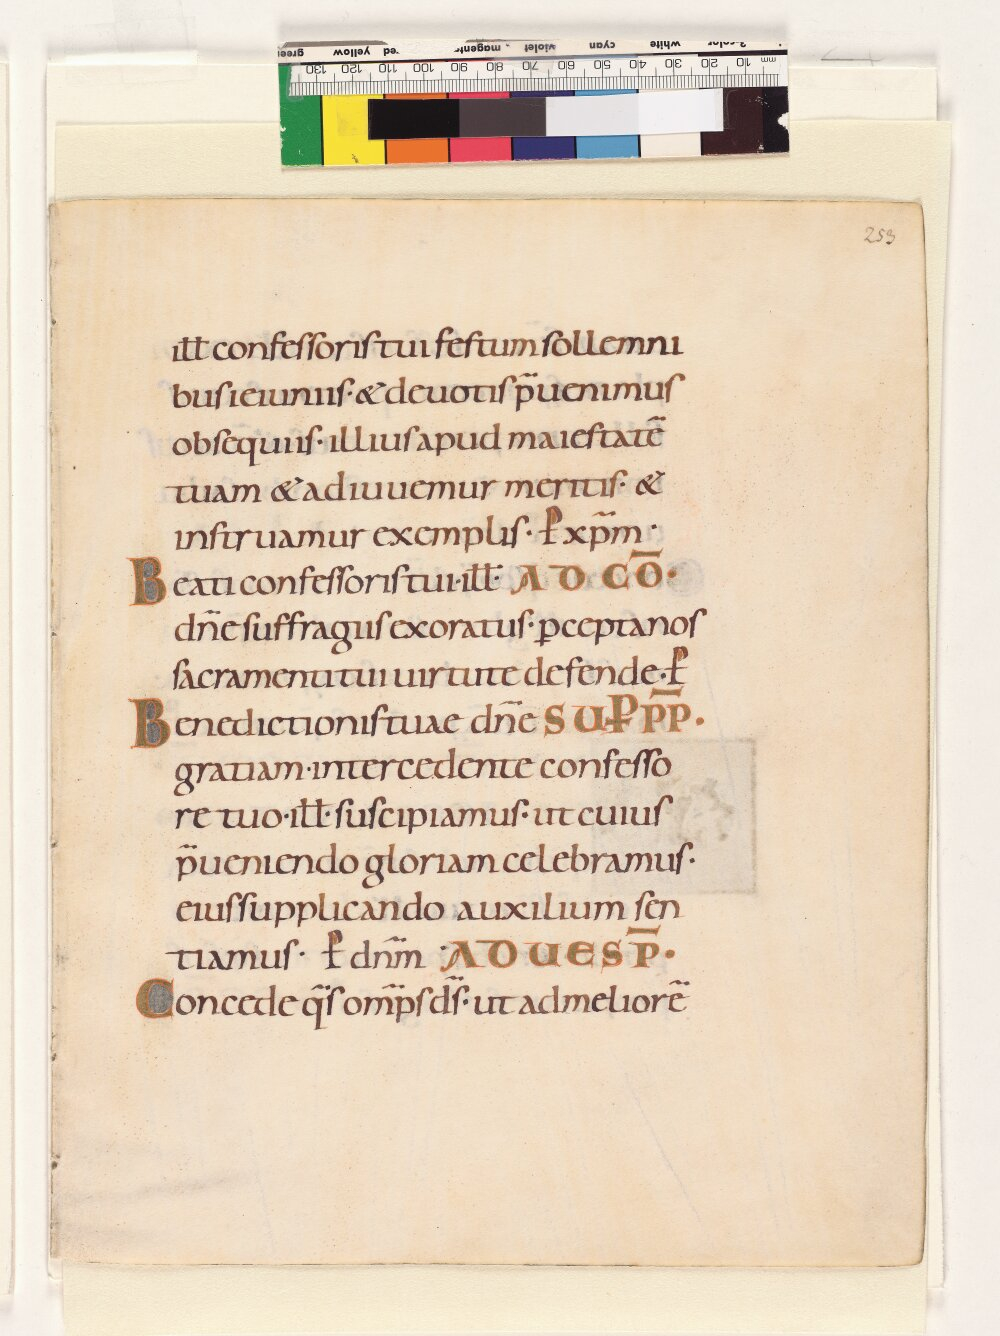 green yellow red magenta violet cyan white 3-color
130 120 110 100 90 80 70 60 50 40 30 20 10 mm
253
ill̅ confessoris tui festum sollemni
bus ieiuniis· & deuotis p̄uenimus
obsequiis· illius apud maiestatē
tuam & adiuuemur meritis· &
instruamur exemplis· P̵ xp̄m·
Beati confessoris tui·ill̅· AD CŌ·
dn̄e suffragiis exoratus· ꝑcepta nos
sacramenti tui uirtute defende· P̵
Benedictionis tuae dn̄e SUP̵ P̄P̄·
gratiam· intercedente confesso
re tuo·ill̅· suscipiamus· ut cuius
p̄ueniendo gloriam celebramus·
eius supplicando auxilium sen
tiamus· P̵ dn̄m AD UESP̄·
Concede q̄s om̄ps d̄s· ut ad meliorē